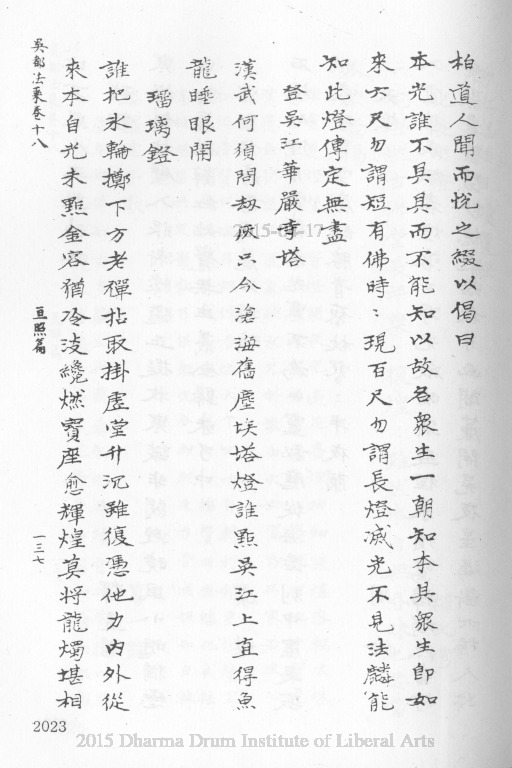 柏道人聞而悅之綴以偈曰
本光誰不具具而不能知以故名衆生一朝知本具衆生即如
來六尺勿謂短有佛時:現百尺勿謂長燈滅光不見法麟能
知此燈傳定無盡
登吳江華嚴寺塔
漢武何須問劫灰只今滄海舊塵埃塔燈誰點吳江上直得魚
龍睡眼開
瑠璃鐙
誰把氷輪擲下方老禪拈取掛虛堂升沉雖復憑他力內外從
來本自光未點金容猶冷淡纔燃寶座愈輝煌莫將龍燭堪相
吳都法乘卷十八
亘照篇
一三七
2023
2015-04-17
2015 Dharma Drum Institute of Liberal Arts